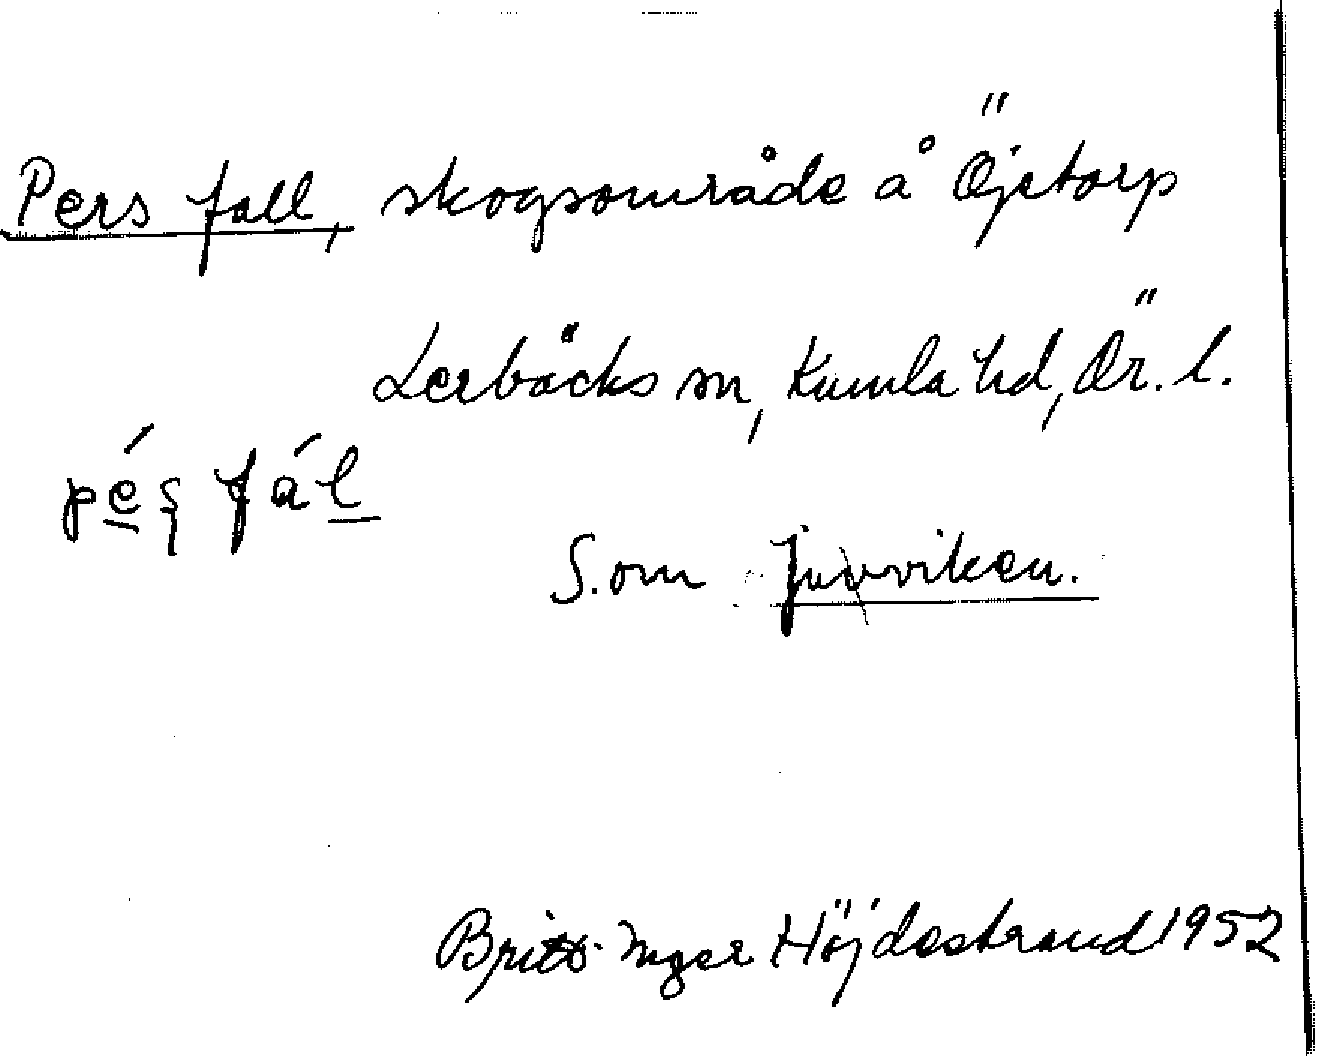 Pers fall, skogsområde å Öjetorp
Lerbäcks sn, Kumla hd, Ör. l.
pé̲ʂ fál̲
S. om Jurviken.
Britt-Inger Höjdestrand 1952